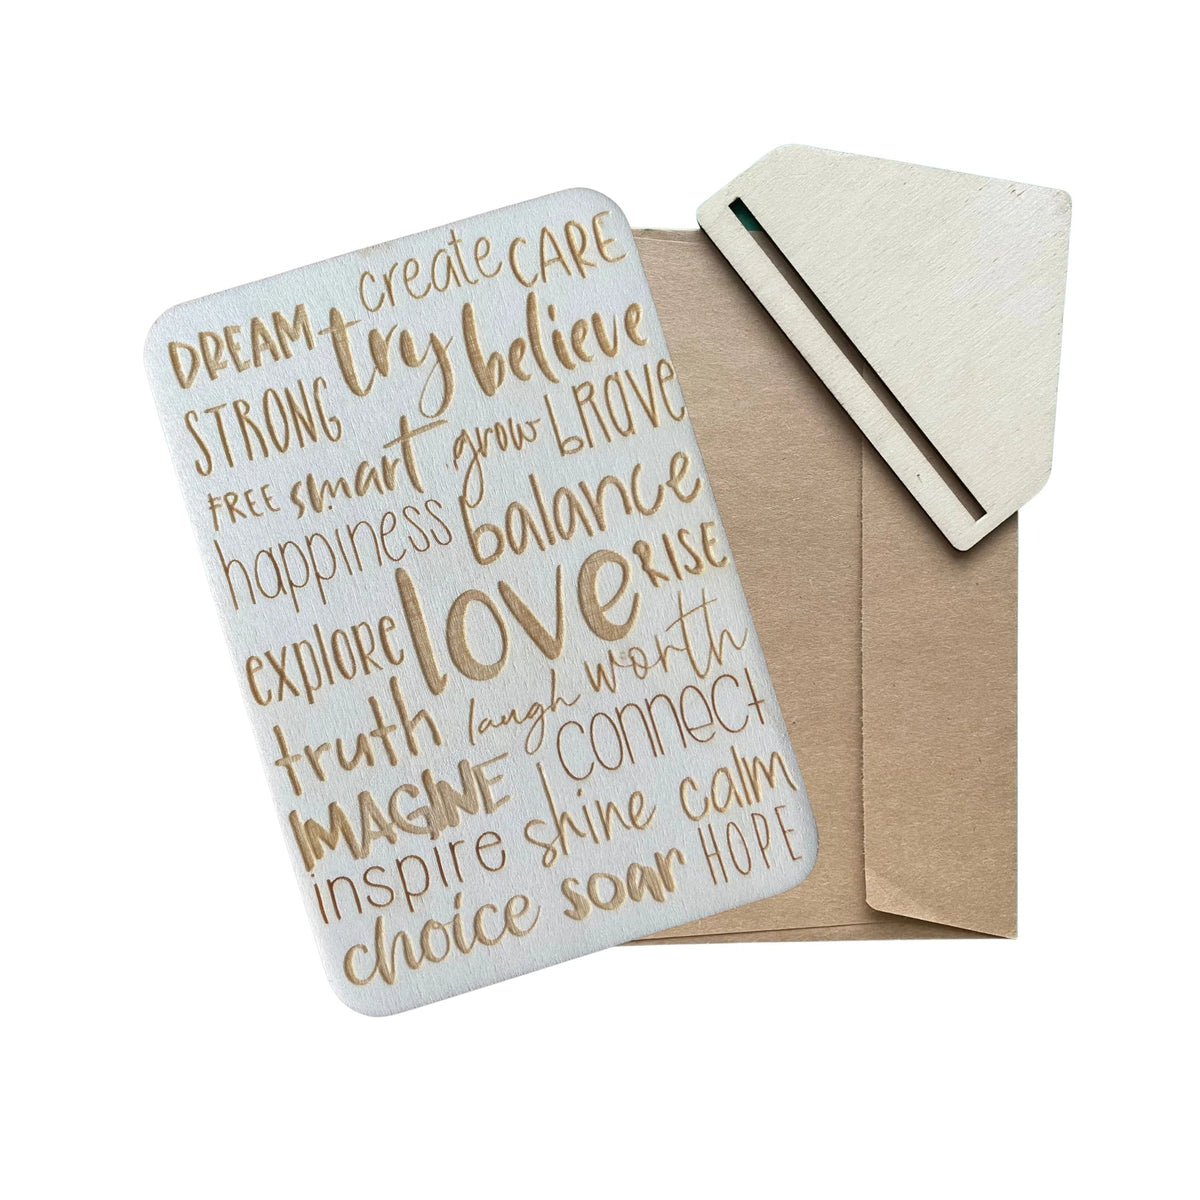 create CARE
DREAM try believe
STRONG smart grow bRAVe
FREE happiness balance
explore love RISE
truth laugh worth
IMAGINE connect
inspire shine calm
choice soar HOPE